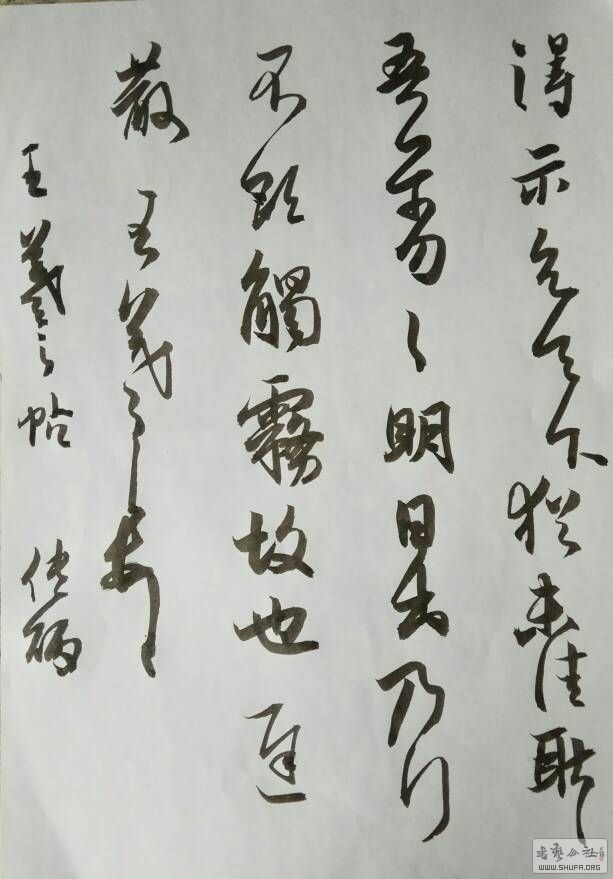 得示知足下猶未佳耿
吾亦劣〻明日出乃行
不欲觸霧故也遲
散王羲之頓首
王羲之帖
書藝公社
WWW.SHUFA.ORG